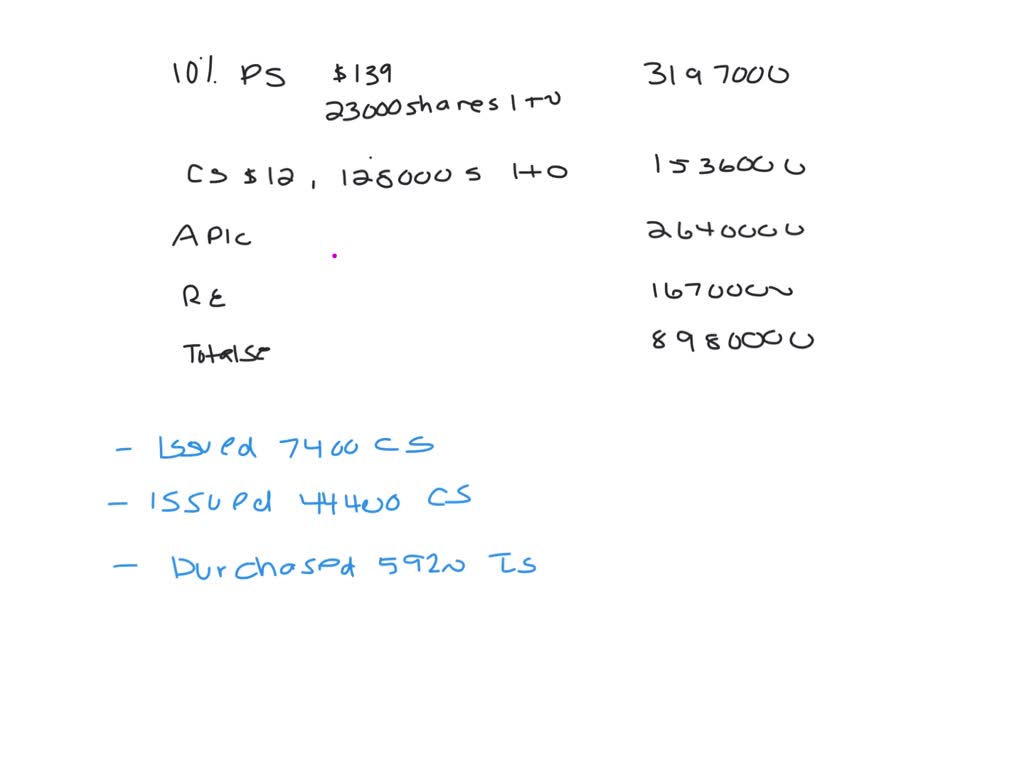 10% PS $139 3197000
23000 shares I+O
CS $12, 128000 S I+O 1536000
APIC 2640000
RE 1670000
Total SE 8980000
- Issued 7400 CS
- Issued 44400 CS
- Purchased 5920 TS